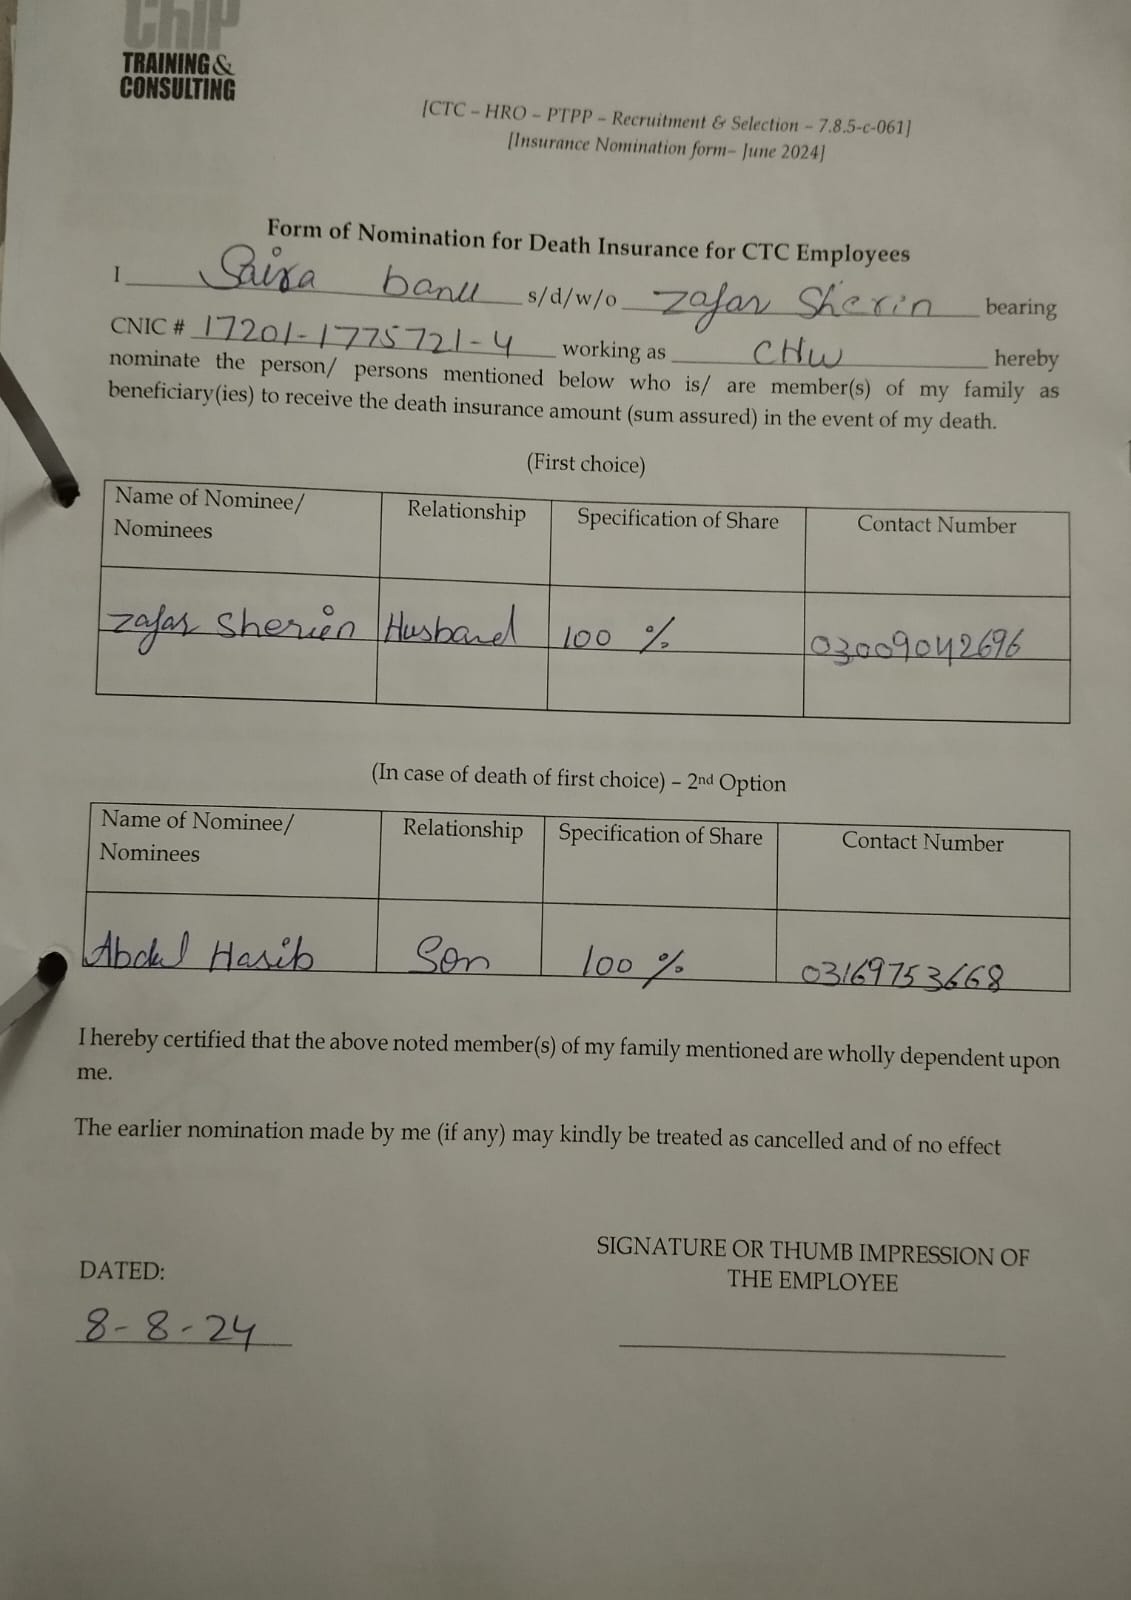 ChIP
TRAINING &
CONSULTING
[CTC – HRO – PTPP – Recruitment & Selection – 7.8.5-c-061]
[Insurance Nomination form– June 2024]
Form of Nomination for Death Insurance for CTC Employees
I Saira banu s/d/w/o Zafar Sherin bearing
CNIC # 17201-1775721-4 working as CHW hereby
nominate the person/ persons mentioned below who is/ are member(s) of my family as
beneficiary(ies) to receive the death insurance amount (sum assured) in the event of my death.
(First choice)
Name of Nominee/ Nominees Relationship Specification of Share Contact Number
Zafar Sherien Husband 100 % 03009042696
(In case of death of first choice) – 2nd Option
Name of Nominee/ Nominees Relationship Specification of Share Contact Number
Abdul Hasib Son 100 % 03169753668
I hereby certified that the above noted member(s) of my family mentioned are wholly dependent upon
me.
The earlier nomination made by me (if any) may kindly be treated as cancelled and of no effect
SIGNATURE OR THUMB IMPRESSION OF
THE EMPLOYEE
DATED:
8-8-24